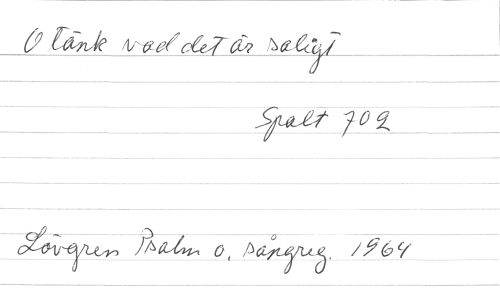 O tänk vad det är saligt
Spalt 702
Lövgren Psalm o. sångreg. 1964